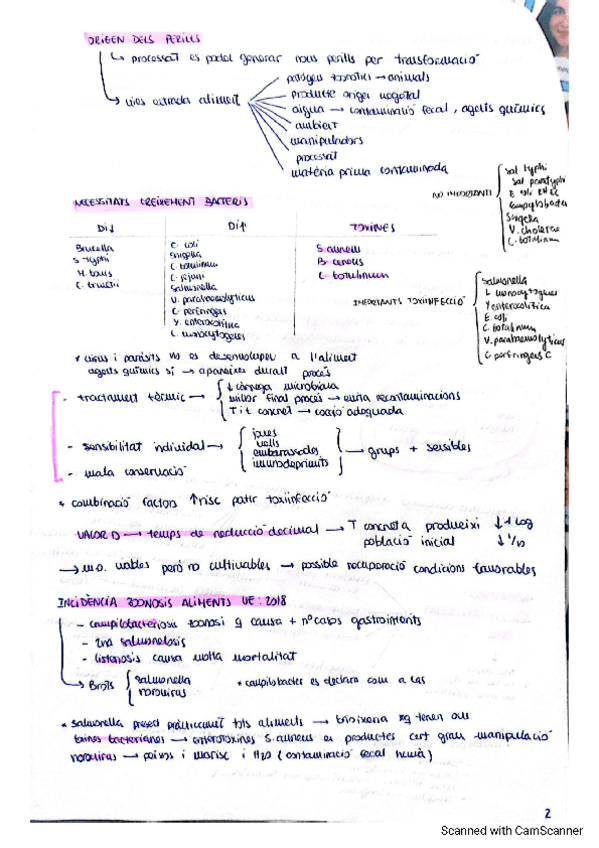 ORIGEN DELS PERILLS
↳ processat es poden generar nous perills per transformació
↳ vies entrada aliment
patògens zoonòtics → animals
producte origen vegetal
aigua → contaminació fecal, agents químics
ambient
manipuladors
processat
matèria prima contaminada
NO IMPORTANT
Sal typhi
Sal paratyphi
E. coli
Campylobacter
Shigella
V. cholerae
C. botulinum
NECESSITATS CREIXEMENT BACTERIS
DI↓
DI↑
TOXINES
Brucella
S typhi
M. bovis
C. burnetii
E. coli
Shigella
C. botulinum
C. jejuni
Salmonella
V. parahaemolyticus
C. perfringens
Y. enterocolitica
L. monocytogenes
S. aureus
B. cereus
C. botulinum
IMPORTANTS TOXIINFECCIÓ
Salmonella
L. monocytogenes
Y enterocolitica
E. coli
C. botulinum
V. parahaemolyticus
C perfringens C
* virus i paràsits no es desenvolupen a l'aliment
agents químics sí → apareixen durant procés
- tractament tèrmic →
↓ càrrega microbiana
millor final procés → evita recontaminacions
T i t concret → cocció adequada
- sensibilitat individual →
joves
vells
embarassades
immunodeprimits
→ grups + sensibles
- mala conservació
* combinació factors ↑ risc patir toxiinfecció
VALOR D → temps de reducció decimal → T concreta produeixi ↓ 1 log
població inicial ↓ 1/10
→ m.o. viables però no cultivables → possible recuperació condicions favorables
INCIDÈNCIA ZOONOSIS ALIMENTS UE: 2018
- campilobacteriosis zoonosi q causa + nº casos gastroint
- 2na salmonelosis
- listeriosis causa molta mortalitat
↳ Brots
salmonella
norovirus
* campilobacter es declara com a cas
* Salmonella present pràcticament tots aliments → brioixeria xq tenen ous
toxines bacterianes → enterotoxines S. aureus en productes cert grau manipulació
norovirus → peixos i marisc i H2O (contaminació fecal humà)
2
Scanned with CamScanner